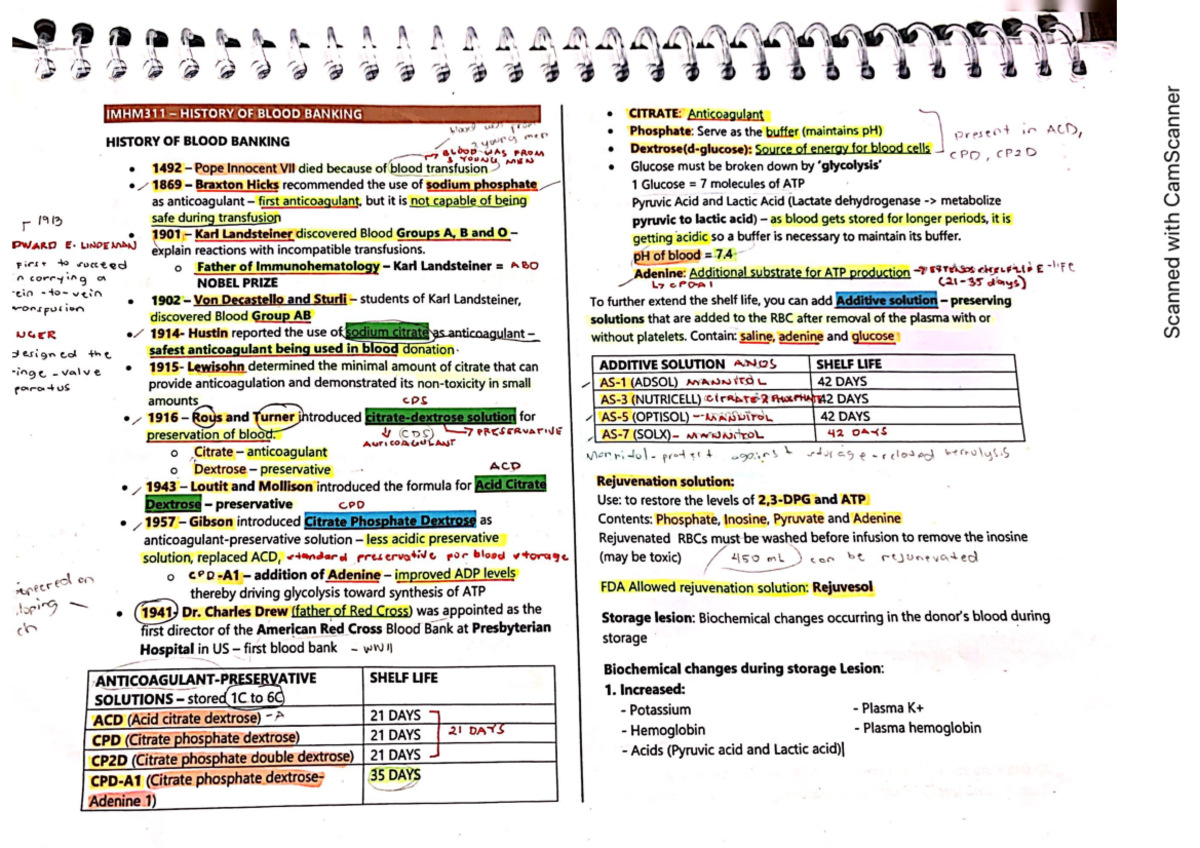 IMHM311 – HISTORY OF BLOOD BANKING
HISTORY OF BLOOD BANKING
blood was from
3 young men
→ BLOOD WAS FROM
3 YOUNG MEN
• 1492 – Pope Innocent VII died because of blood transfusion
• 1869 – Braxton Hicks recommended the use of sodium phosphate
as anticoagulant – first anticoagulant, but it is not capable of being
safe during transfusion
• 1901 – Karl Landsteiner discovered Blood Groups A, B and O –
explain reactions with incompatible transfusions.
o Father of Immunohematology – Karl Landsteiner = ABO
NOBEL PRIZE
• 1902 – Von Decastello and Sturli – students of Karl Landsteiner,
discovered Blood Group AB
• 1914- Hustin reported the use of sodium citrate as anticoagulant –
safest anticoagulant being used in blood donation
• 1915- Lewisohn determined the minimal amount of citrate that can
provide anticoagulation and demonstrated its non-toxicity in small
amounts
CDS
• 1916 – Rous and Turner introduced citrate-dextrose solution for
preservation of blood.
(CDS) → PRESERVATIVE
ANTICOAGULANT
o Citrate – anticoagulant
o Dextrose – preservative
ACD
• 1943 – Loutit and Mollison introduced the formula for Acid Citrate
Dextrose – preservative
CPD
• 1957 – Gibson introduced Citrate Phosphate Dextrose as
anticoagulant-preservative solution – less acidic preservative
solution, replaced ACD, standard preservative for blood storage
o CPD-A1 – addition of Adenine – improved ADP levels
thereby driving glycolysis toward synthesis of ATP
• 1941- Dr. Charles Drew (father of Red Cross) was appointed as the
first director of the American Red Cross Blood Bank at Presbyterian
Hospital in US – first blood bank - WWII
1913
DWARD E. LINDEMAN
first to succeed
n carrying a
ein - to - vein
ransfusion
UNGER
designed the
ringe - valve
paratus
loping
ch
ANTICOAGULANT-PRESERVATIVE
SOLUTIONS – stored 1C to 6C
SHELF LIFE
ACD (Acid citrate dextrose) -A 21 DAYS
CPD (Citrate phosphate dextrose) 21 DAYS
21 DAYS
CP2D (Citrate phosphate double dextrose) 21 DAYS
CPD-A1 (Citrate phosphate dextrose-
Adenine 1)
35 DAYS
• CITRATE: Anticoagulant
• Phosphate: Serve as the buffer (maintains pH)
• Dextrose(d-glucose): Source of energy for blood cells
present in ACD,
CPD, CP2D
• Glucose must be broken down by 'glycolysis'
1 Glucose = 7 molecules of ATP
Pyruvic Acid and Lactic Acid (Lactate dehydrogenase -> metabolize
pyruvic to lactic acid) – as blood gets stored for longer periods, it is
getting acidic so a buffer is necessary to maintain its buffer.
pH of blood = 7.4
Adenine: Additional substrate for ATP production
→ EXTENDS SHELF LIFE - life
(21-35 days)
↳ CPDA1
To further extend the shelf life, you can add Additive solution – preserving
solutions that are added to the RBC after removal of the plasma with or
without platelets. Contain: saline, adenine and glucose
ADDITIVE SOLUTION SHELF LIFE
AS-1 (ADSOL) MANNITOL 42 DAYS
AS-3 (NUTRICELL) CITRATE & PHOSPHATE 42 DAYS
AS-5 (OPTISOL) - MANNITOL 42 DAYS
AS-7 (SOLX) - MANNITOL 42 DAYS
Mannitol - protect against storage - related hemolysis
Rejuvenation solution:
Use: to restore the levels of 2,3-DPG and ATP
Contents: Phosphate, Inosine, Pyruvate and Adenine
Rejuvenated RBCs must be washed before infusion to remove the inosine
(may be toxic) 450 mL can be rejunevated
FDA Allowed rejuvenation solution: Rejuvesol
Storage lesion: Biochemical changes occurring in the donor's blood during
storage
Biochemical changes during storage Lesion:
1. Increased:
- Potassium - Plasma K+
- Hemoglobin - Plasma hemoglobin
- Acids (Pyruvic acid and Lactic acid)
Scanned with CamScanner